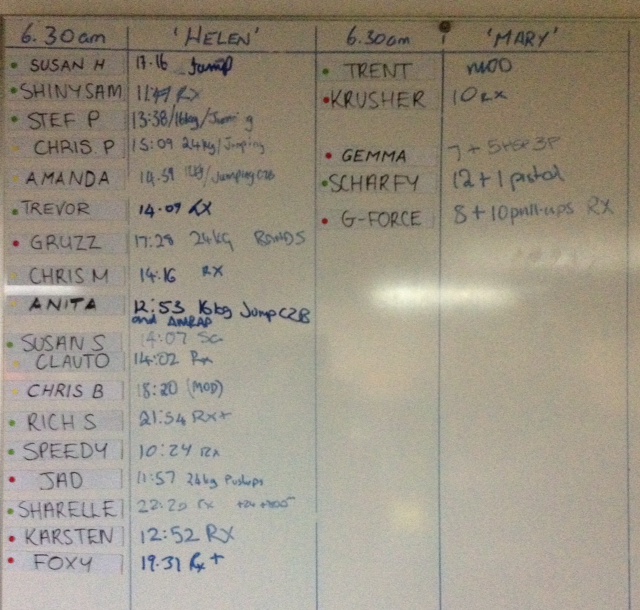 6.30am 'HELEN' 6.30am 'MARY'
SUSAN H 17.16 Jump TRENT MOD
SHINYSAM RX KRUSHER 10 RX
STEF P 13:38/16kg/Jumping
CHRIS P 15:09 24kg/Jumping GEMMA 7 +
AMANDA 14.59 /JumpingC2B SCHARFY 12+1 pistol
TREVOR 14.09 RX G-FORCE 8+10pull-ups RX
GRUZZ 17:28 24KG BANDS
CHRIS M 14.16 RX
ANITA 12:53 16kg Jump C2B
and AMRAP
SUSAN S 14:07
CLAUTO 14:02 Rx
CHRIS B 18:20 (MOD)
RICH S 21:54 RX+
SPEEDY 10:24 RX
JAD 11:57 24kg Pushups
SHARELLE 22:20 RX
KARSTEN 12:52 RX
FOXY 19.31 Rx +